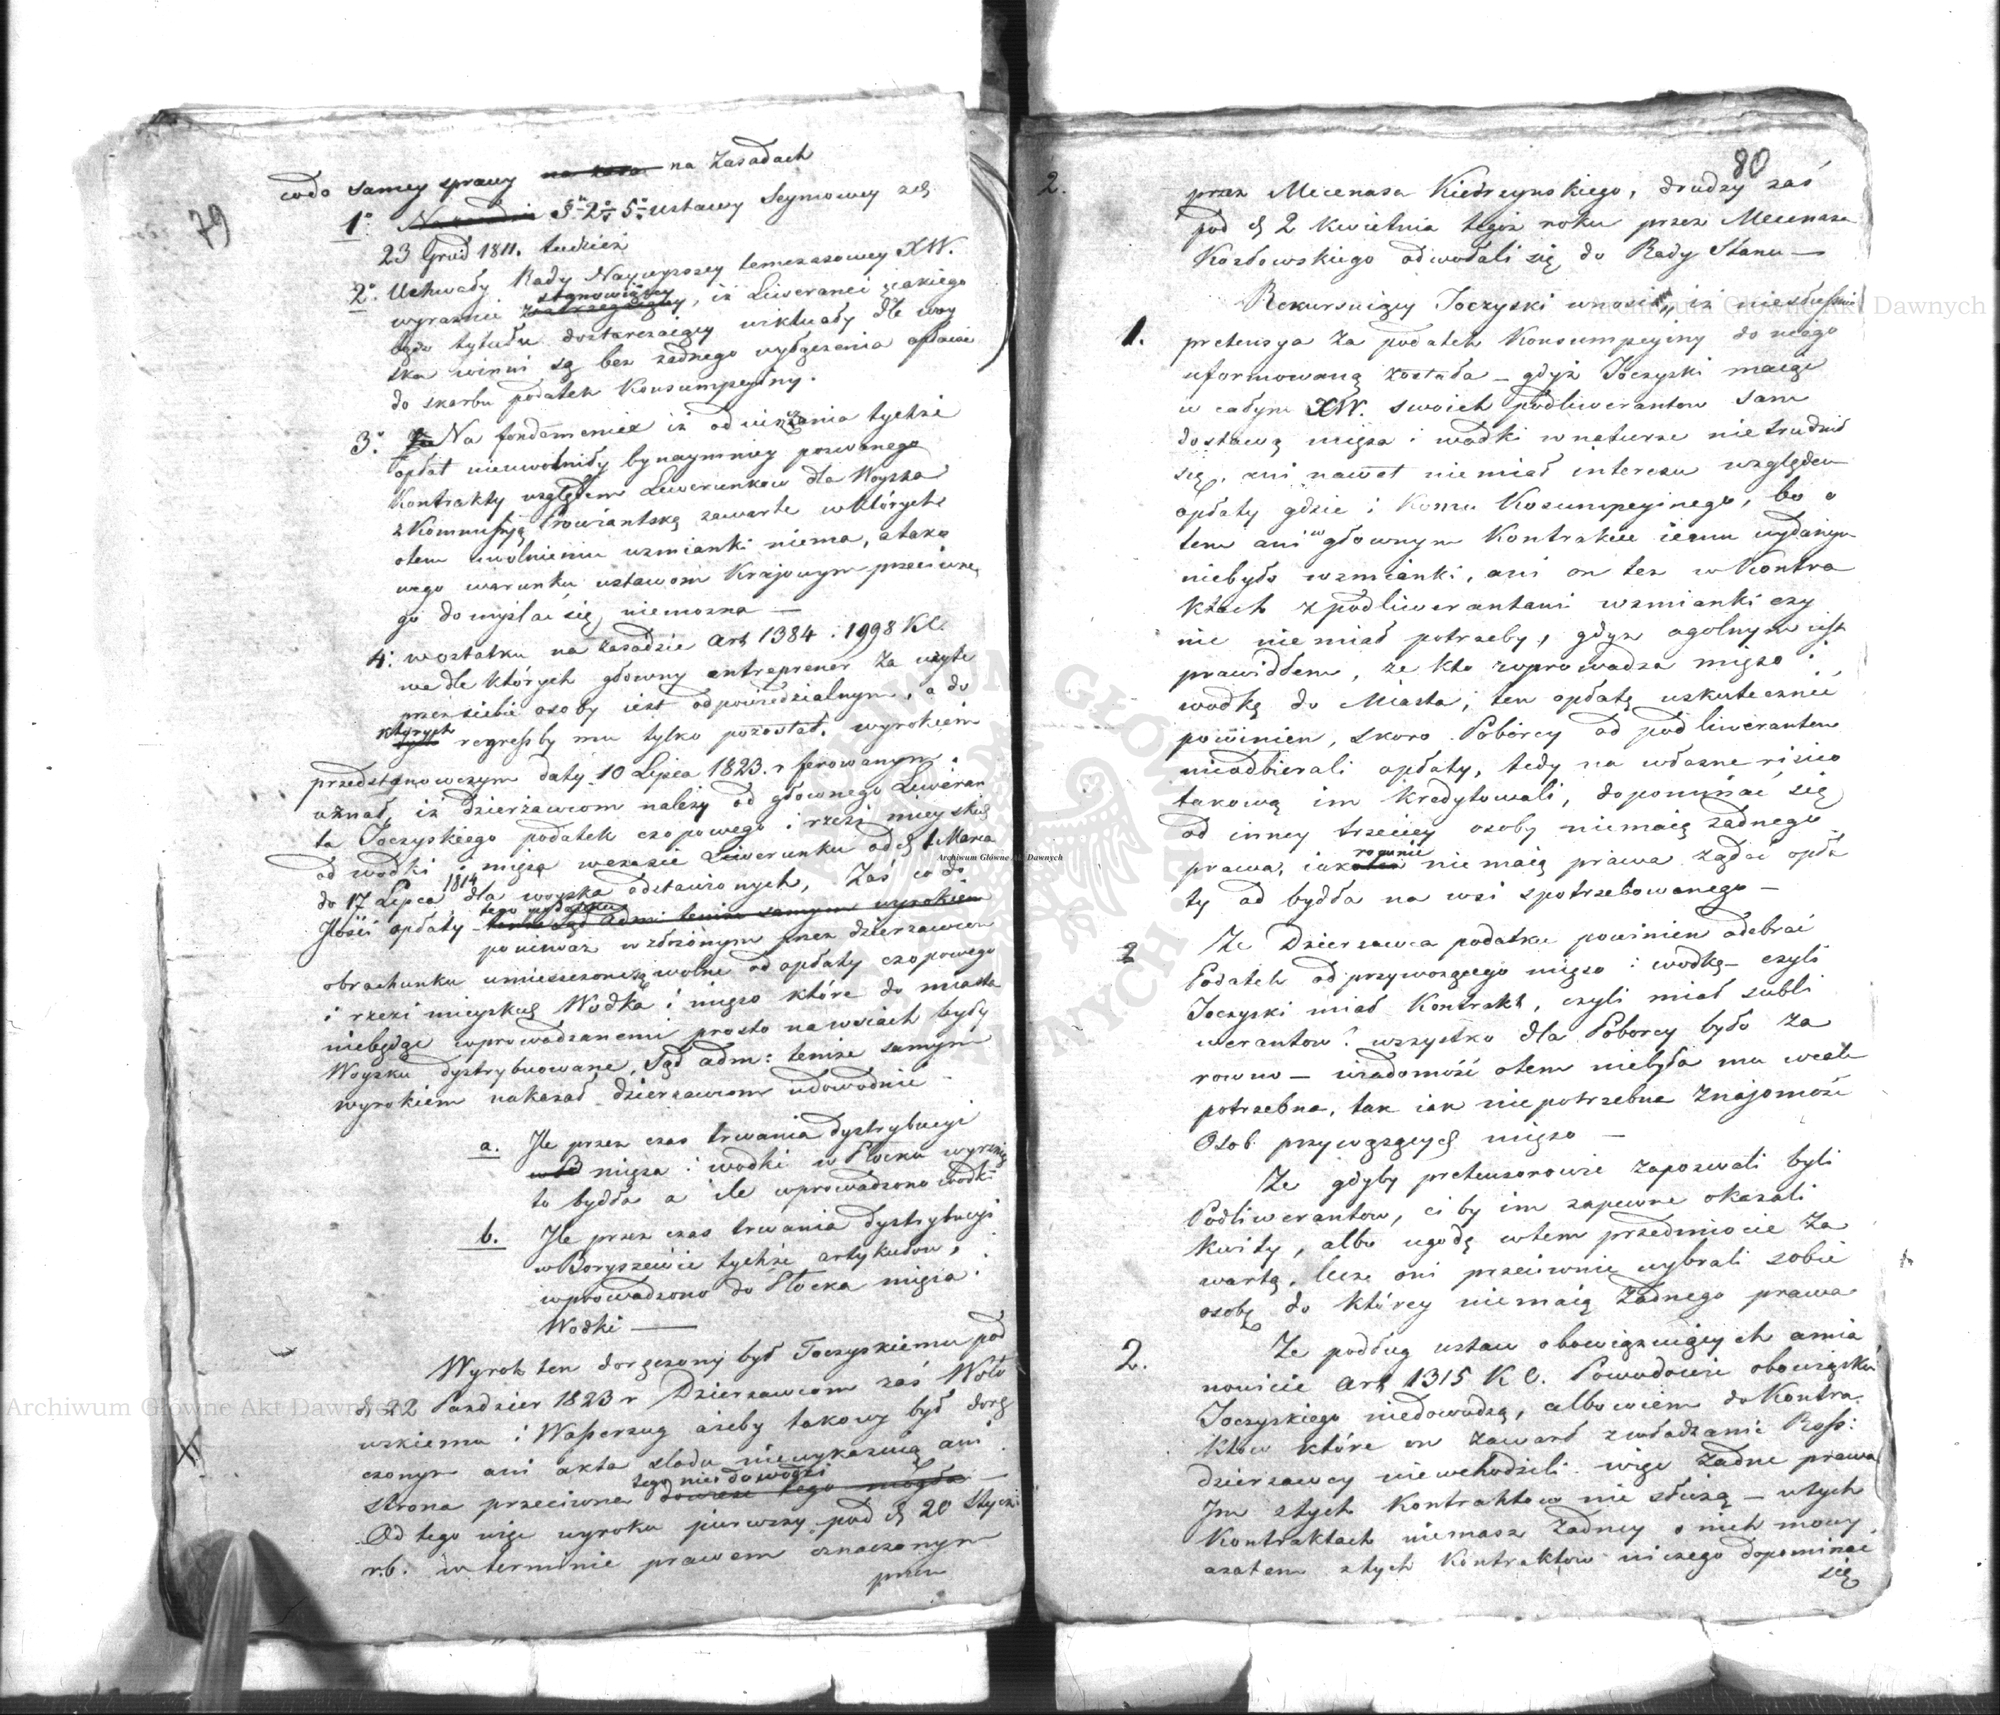 79
codo samey sprawy na zasa na Zasadach
1° Na zasadzie §u 2° 5° ustawy Seymowey z d
23 Grud 1811. tudzież
2° Uchwały Rady Naywyższey temczasowey XW.
stanowiącey
wyraznie zastrzegaiącey, iż Liweranci z iakiego
bądz tytułu dostarczaiący wiktuały dla woy
ska winni są bez żadnego wyłączenia opłacać
do skarbu podatek Konsumpcyiny.
3° Na fondamencie iż od uiszczania tychże
opłat nieuwolniły bynaymniey pozwanego
Kontrakty względem Liwerunkow dla Woyska
z Kommissyą Prowiantską zawarte w których
otem uwolnieniu wzmianki niema, a tako
wego warunku ustawom Krajowym przeciwne
go domyslac się niemozna —
4. wostatku na zasadzie Art 1384 i 1998 KC.
wedle których głowny antreprener za użyte
przez siebie osoby iest odpowiedzialnym, a do
których
regressby mu tylko pozostał, wyrokiem
przedstanowczym daty 10 Lipca 1823 r ferowanym
uznał, iż dzierżawcom należy od głownego Liweran
ta Toczyskiego podatek czopowego i rzezi mieyskiey
od wodki i mięsa w czasie Liwerunku od d 1 Marca
do 17 Lipca 1814 dla woyska odstawionych, Zaś co do
Ilości opłaty tego podatku tenże Sąd Adm: tenże samym wyrokiem
ponieważ w złożonym przez dzierzawcow
obrachunku umieszczone są wolne od opłaty czopowego
i rzezi mieyskiey Wodka i mięso które do miasta
niebędąc wprowadzanemi prosto na wsiach były
Woysku dystrybuowane, Sąd adm: tenże samym
wyrokiem nakazał dzierzawcom udowodnić —
a. Ile przez czas trwania dystrybucyi
mięsa i wodki w Płocku wyrznię
to bydła a ile wprowadzono wodki
b. Ile przez czas trwania dystrybucyi
w Boryszewie tychże artykułow,
wprowadzono do Płocka mięsa i
Wodki —
Wyrok ten doręczony był Toczyskiemu pod
d 22 Pazdzier 1823 r Dzierzawcom zaś Woło
wskiemu i Wasserzug ażeby takowy był doręc
czonym ani akta sladu niewykazuią ani
tego niedowodzi
strona przeciwna dowiesc tego mogła —
Od tego więc wyroku pierwszy pod d 20 Stycz
r.b. w terminie prawem oznaczonym
przez
80
2.
przez Mecenasa Kiedrzynskiego, drudzy zaś
pod d 2 Kwietnia tegoż roku przez Mecenasa
Kozłowskiego odwołali się do Rady Stanu —
Rekursuiący Toczyski wnosi, iż niesłusznie
1. pretensya za podatek Konsumpcyiny do niego
uformowaną została — gdyż Toczyski maiąc
w całym XW. swoich podliwerantow sam
dostawą mięsa i wodki w naturze nietrudnił
się, ani nawet niemiał interesu względem
opłaty gdzie i komu Kosumpcyinego, bo o
tem ani w głownym Kontrakcie iemu wydanym
niebyło wzmianki, ani on też w Kontra
ktach z podliwerantami wzmianki czy
nic niemiał potrzeby, gdyz ogolnym iest
prawidłem, że kto wprowadza mięso i
wodkę do Miasta, ten opłatę uskutecznić
powinien, skoro Poborcy od podliwerantow
nieodbierali opłaty, tedy na własne risico
takową im kredytowali, dopominać się
od inney trzeciey osoby niemaią żadnego
rownie
prawa, iak niemaią prawa żądać opła
ty od bydła na wsi spotrzebowanego —
2 Że Dzierzawca podatku powinien odebrać
Podatek od przywożącego mięso i wodkę — czyli
Toczyski miał Kontrakt, czyli miał subli
werantow? wszystko dla Poborcy było za
rowno — wiadomość otem niebyła mu wcale
potrzebna, tak iak niepotrzebna znajomość
Osob przywożących mięso —
Że gdyby pretensorowie zapozwali byli
Podliwerantow, ci by im zapewne okazali
kwity, albo ugodę wtem przedmiocie za
wartą, lecz oni przeciwnie wybrali sobie
osobę do którey niemaią żadnego prawa
2. Że podług ustaw obowiązuiących a mia
nowicie Art 1315 K C. Powodowie obowiązku
Toczyskiego niedowodzą, albowiem do Kontra
ktow które on zawarł z władzami Ross:
dzierzawcy niewchodzili więc żadne prawa
Im z tych Kontraktow nie służą — w tych
Kontraktach niemasz żadney o nich mowy
azatem z tych Kontraktow niczego dopominać
się